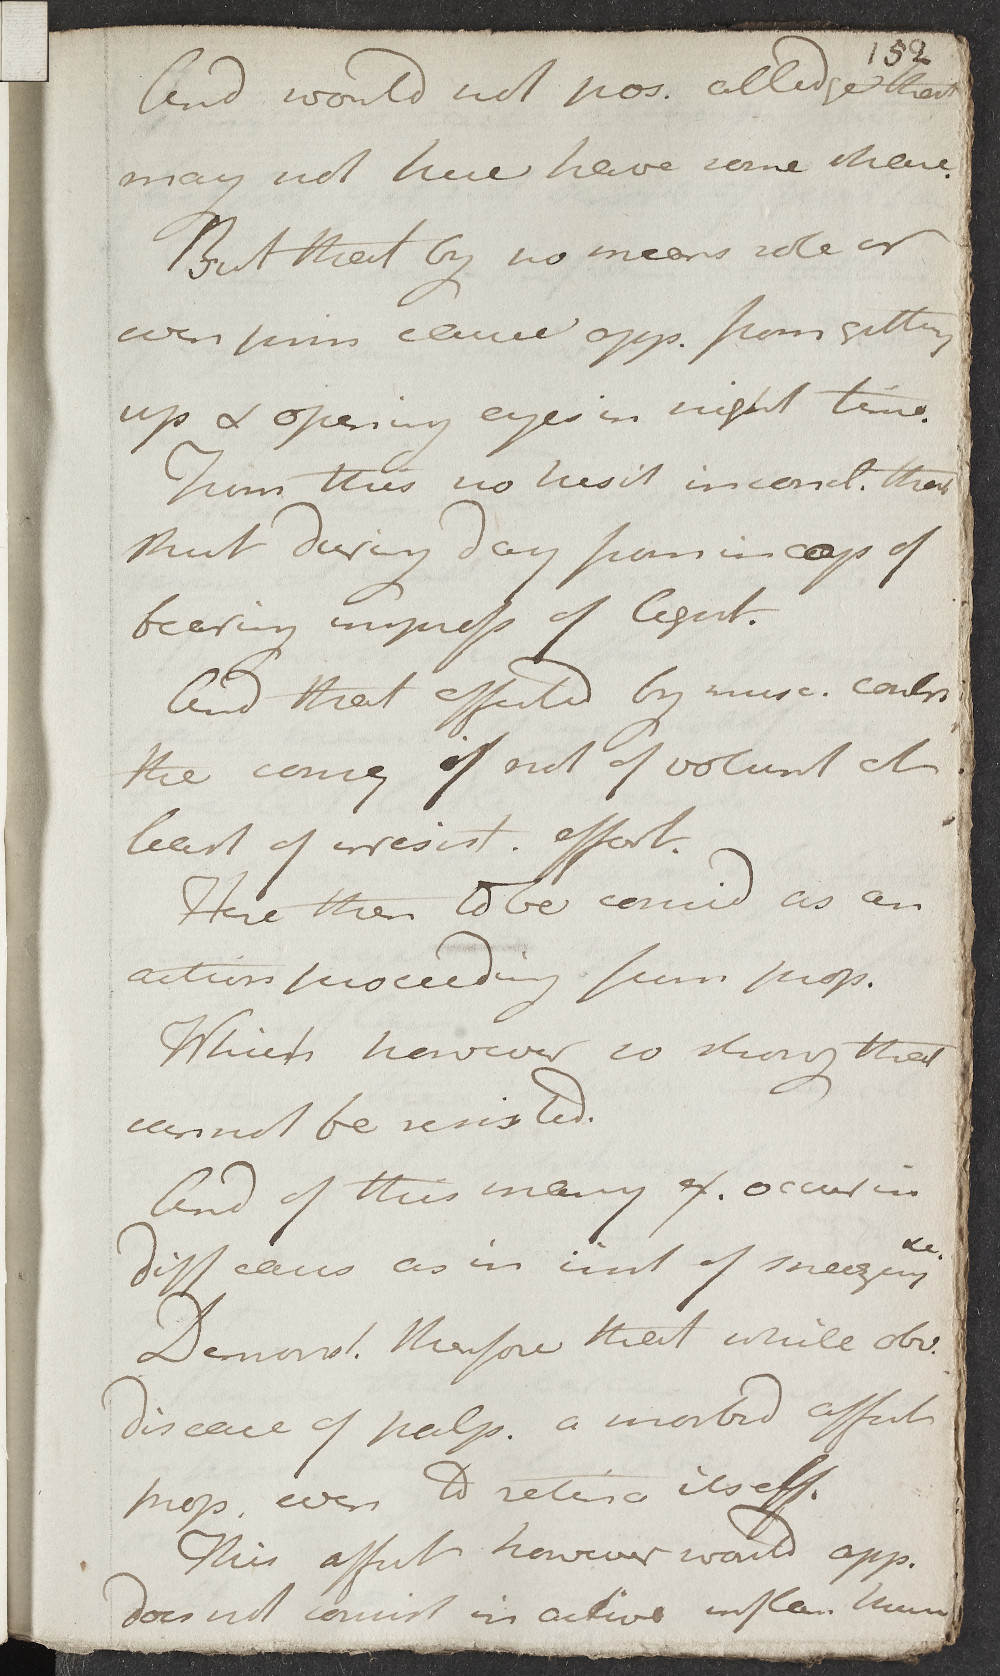 152
And would not pos. alledge that
may not here have some share.
But that by no means sole or
even prin cause app. from getting
up & opening eyes in night time.
From this no hesit in concl. that
shut during day from incap of
bearing impress of light.
And that effected by musc. contr
the conseq if not of volunt at
least of irresist. effort.
Here then to be consid as an
action proceeding from prop.
Which however so strong that
cannot be resisted.
And of this many ex. occur in
diff cases as in inst of sneezing &c.
Demonst. therefore that while obv.
disease of palp. a morbid affect
prop. even to retina itself.
This affect however would app.
does not consist in active inflam